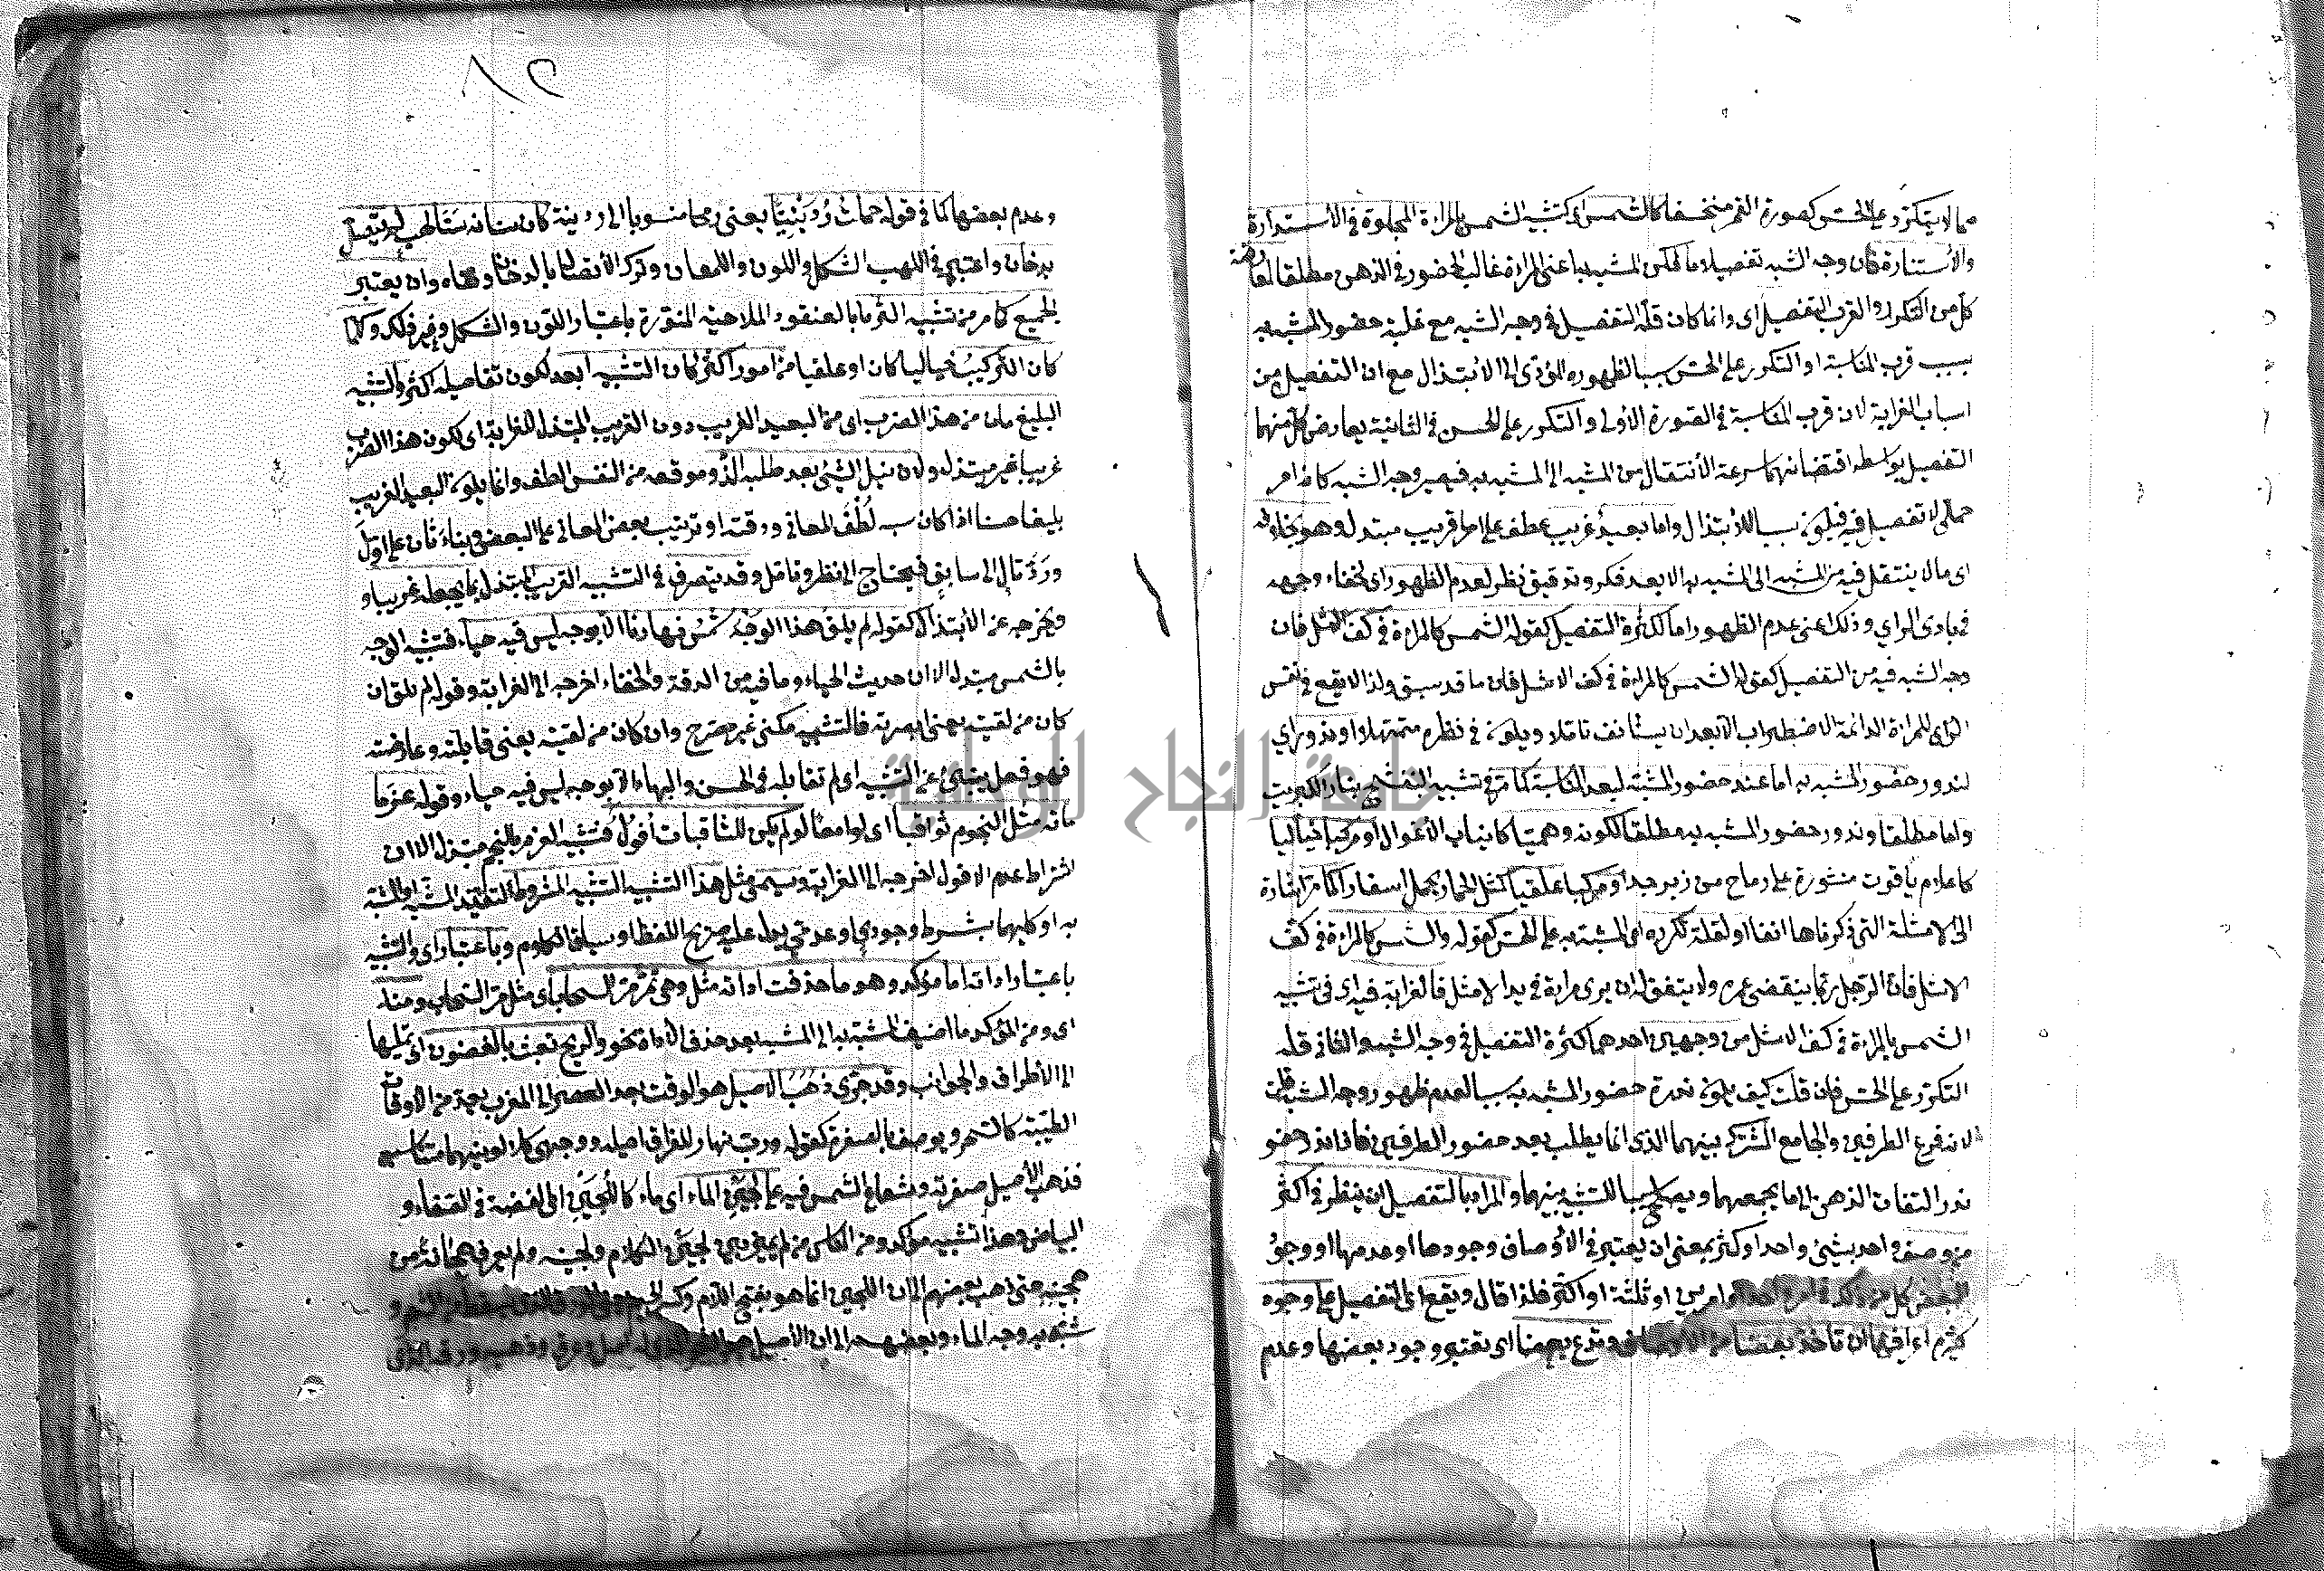 مما لا يتكرر على الحس كصورة القمر منخسفا كالشمس اى كتشبيه الشمس بالمراءة المجلوة في الأستدارة
والأستنارة فان وجه الشبه تفصيلا ما لكن المشبه به اعنى المراءة غالب الحضور في الذهن مطلقا لمعارضة
كل من التكرار والقرب التفصيل اى وانما كان قلة التفصيل في وجه الشبه مع غلبة حضور المشبه به
بسبب قرب المناسبة او التكرر على الحس سببا لظهوره المؤدى الى الابتذال مع ان التفصيل من
اسباب الغرابة لان قرب المناسبة في الصورة الأولى والتكرر على الحس في الثانية يعارض كل منهما
التفصيل بواسطة اقتضائهما سرعة الأنتقال من المشبه الى المشبه به فيصير وجه الشبه كانه امر
جملى لا تفصيل فيه فيكون سببا للأبتذال واما بعيد غريب عطف على اما قريب مبتدل وهو بخلافه
اى مالا ينتقل فيه من المشبه الى المشبه به الا بعد فكر وتدقيق نظر لعدم الظهور اى لخفاء وجهه
في بادى الراي وذلك اعنى عدم الظهور اما لكثرة التفصيل كقوله الشمس كالمراءة في كف الاشل فان
وجه الشبه فيه من التفصيل كقوله الشمس كالمراءة في كف الاشل فان ما قد سبق ولذا لا يقع في نفس
الرائى للمراءة الدائمة الاضطراب الا بعد ان يستأنف تاملا ويكون في نظره متمهلا او ندور اي
لندور حضور المشبه به اما عند حضور المشبه لبعد المناسبة كما مر في تشبيه البنفسج بنار الكبريت
واما مطلقا وندور حضور المشبه به مطلقا لكونه وهميا كانياب الأغوال او مركبا خياليا
كاعلام ياقوت منشورة على رماح من زبرجد او مركبا عقليا كمثل الحمار يحمل اسفارا كما مر اشارة
الى الامثلة التى ذكرناها انفا او لقلة تكرره اى المشبه به على الحس كقوله والشمس كالمراءة في كف
الاشل فان الرجل ربما ينقضى عمره ولا يتفق له ان يرى مراءة في يد الاشل فالغرابة فيه اى فى تشبيه
الشمس بالمراءة في كف الاشل من وجهين احدهما كثرة التفصيل في وجه الشبه والثانى قلة
التكرر على الحس فان قلت كيف يكون ندرة حضور المشبه به سببا لعدم ظهور وجه الشبه قلت
لانه فرع الطرفين والجامع المشترك بينهما الذى انما يطلب بعد حضور الطرفين فاذا ندر حضو
ندر التفات الذهن الى ما يجمعهما ويصلح سببا للتشبيه بينهما والمراد بالتفصيل ان ينظر في اكثر
من وصف واحد بشئ واحد او كثر بمعنى ان يعتبر في الأوصاف وجودها او عدمها او وجود
البعض كل من ذلك في امر واحد او امرين او ثلثة او اكثر فلذا قال ويقع اى التفصيل على وجوه
كثيرة اعرافهما ان تاخذ بعضا من الأوصاف وتدع بعضا اى يعتبر وجود بعضها وعدم
وعدم بعضها كما في قوله حملت رُدَينيًّا يعنى رمحا منسوبا الى ردينة كان سنانه سنا لهب لم يتصل
بدخان واعتبر في اللهب الشكل واللون واللمعان وترك الأتصال بالدخان ونفاه وان يعتبر
الجميع كما مر من تشبيه الثريا بالعنقود الملاحية المنورة باعتبار اللون والشكل وغير ذلك وكلما
كان التركيب خياليا كان او عقليا من امور اكثر كان التشبيه ابعد لكون تفاصيله اكثر والتشبيه
البليغ ما من هذا الضرب اى من البعيد الغريب دون القريب المبتذل لغرابته اى لكون هذا الضرب
غريبا غير مبتذل ولان نيل الشئ بعد طلبه الذ وموقعه من النفس الطف وانما يكون البعيد الغريب
بليغا حسنا اذا كان سببه لُطف المعانى ودقته او ترتيب بعض المعانى على البعض وبناء ثان على اول
ورد تال الى سابق فيحتاج الى نظر وتامل وقد يتصرف في التشبيه القريب المبتذل بما يجعله غريبا و
ويخرجه عن الأبتذال كقوله لم يلق هذا الوجه شمس نهارنا الا بوجه ليس فيه حياء فتشبيه الوجه
بالشمس مبتدل الا ان حديث الحياء وما فيه من الدقة والخفاء اخرجه الى الغرابة وقوله لم يلق ان
كان من لقيته بمعنى ابصرته فالتشبيه مكنى غير مصرح وان كان من لقيته بمعنى قابلته وعارضته
فهو فعل ينبئ عن التشبيه اى لم تقابله في الحسن والبهاء الا بوجه ليس فيه حياء وقوله عزما
ته مثل النجوم ثواقبا اى لوامعا لو لم يكن للثاقبات أفول فتشبيه العزم بالنجم مبتذل الا ان
اشتراط عدم الافول اخرجه الى الغرابة ويسمى مثل هذا التشبيه التشبيه المشروط لتقييد المشبه او المشبه
به او كليهما بشرط وجودي او عدمى يدل عليه صريح اللفظ او سياق الكلام وباعتبار اى والتشبيه
باعتبار اداته اما مؤكد وهو ما حذفت اداته مثل وهى تمر مر السحاب اى مثل مر السحاب ومنه
اى ومن المؤكد ما اضيف المشبه به الى المشبه بعد حذف الأداة نحو والريح تعبث بالغصون اى تميلها
الى الأطراف والجوانب وقد جرى ذهب الاصيل هو الوقت بعد العصر الى المغرب يعد من الأوقات
الطيبة كالسحر ويوصف بالصفرة كقوله ورب نهار للفراق اصيله ووجهى كلا لونيهما متناسب
فذهب الأصيل صفرته وشعاع الشمس فيه على لجين الماء اى ماء كاللجين اى الفضة في الصفاء و
البياض وهذا تشبيه مؤكد ومن الناس من لم يميز بين لجين الكلام ولجينه ولم يعرف هجانه من
هجينه حتى ذهب بعضهم الى ان اللجين انما هو بفتح اللام وكسر الجيم
شبه به وجه الماء وبعضهم الى ان الأصيل